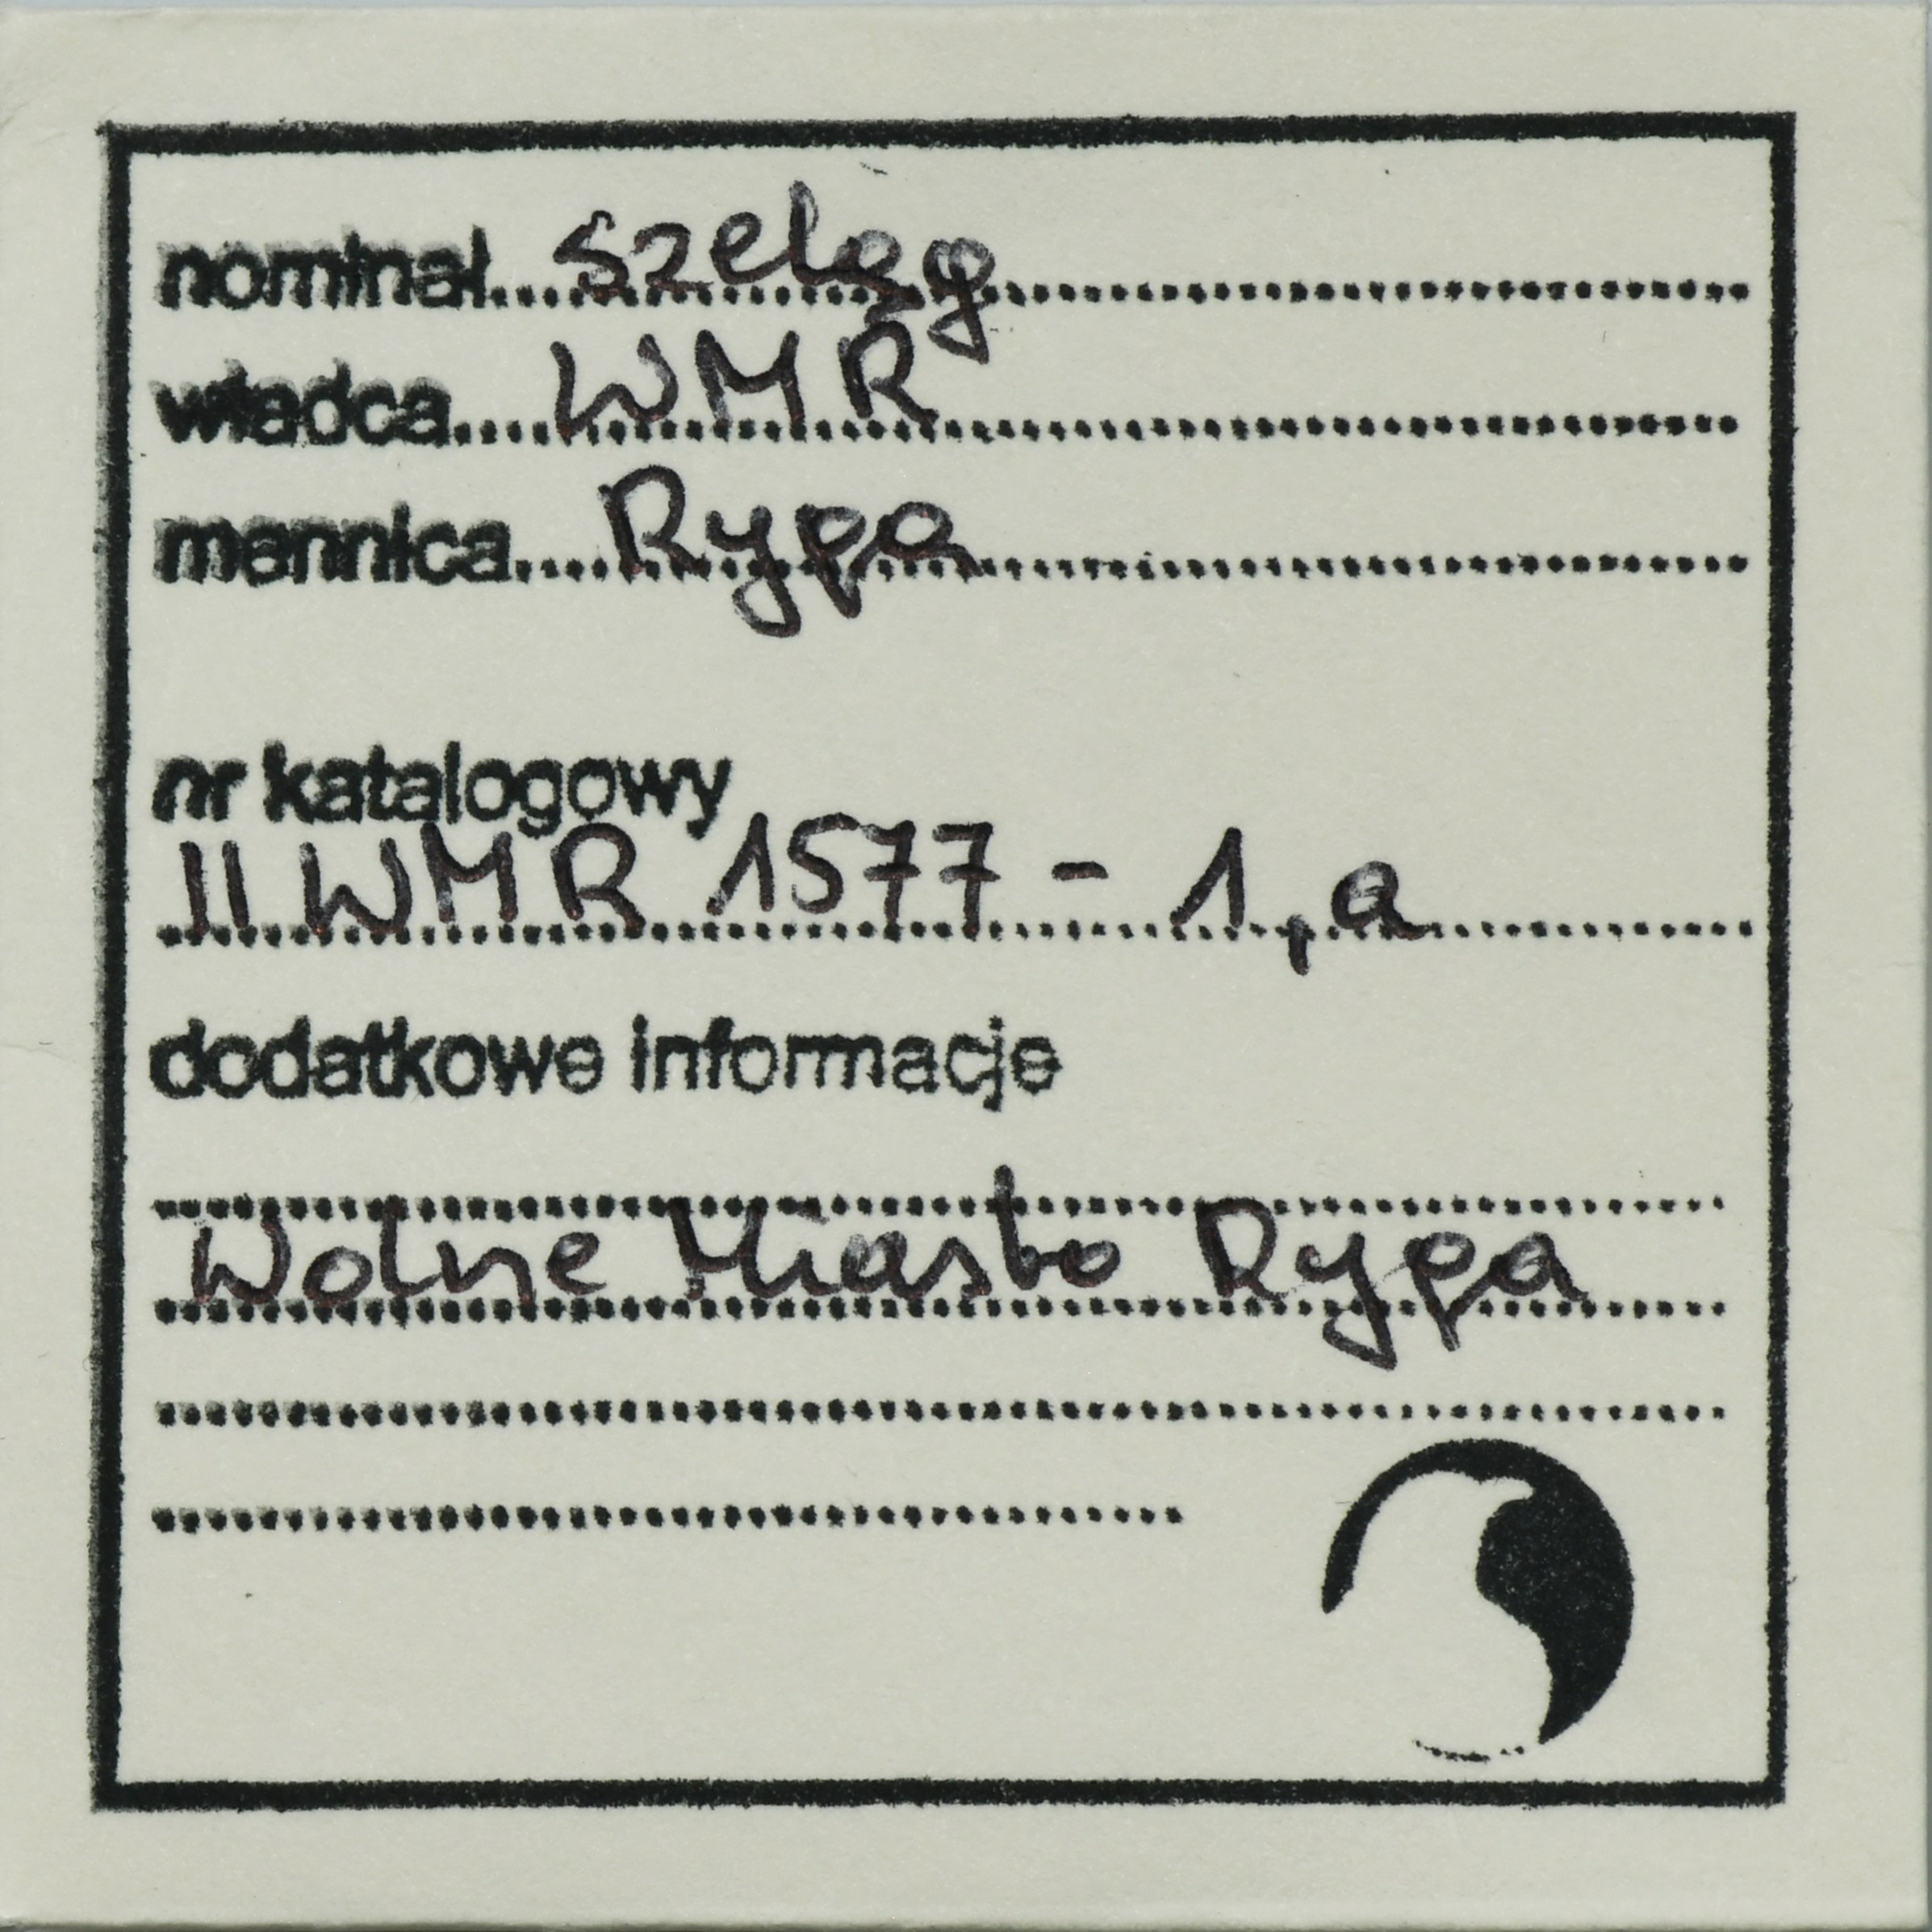 nominał szeląg
władca WMR
mennica Ryga
nr katalogowy
II WMR 1577 - 1, a
dodatkowe informacje
Wolne Miasto Ryga